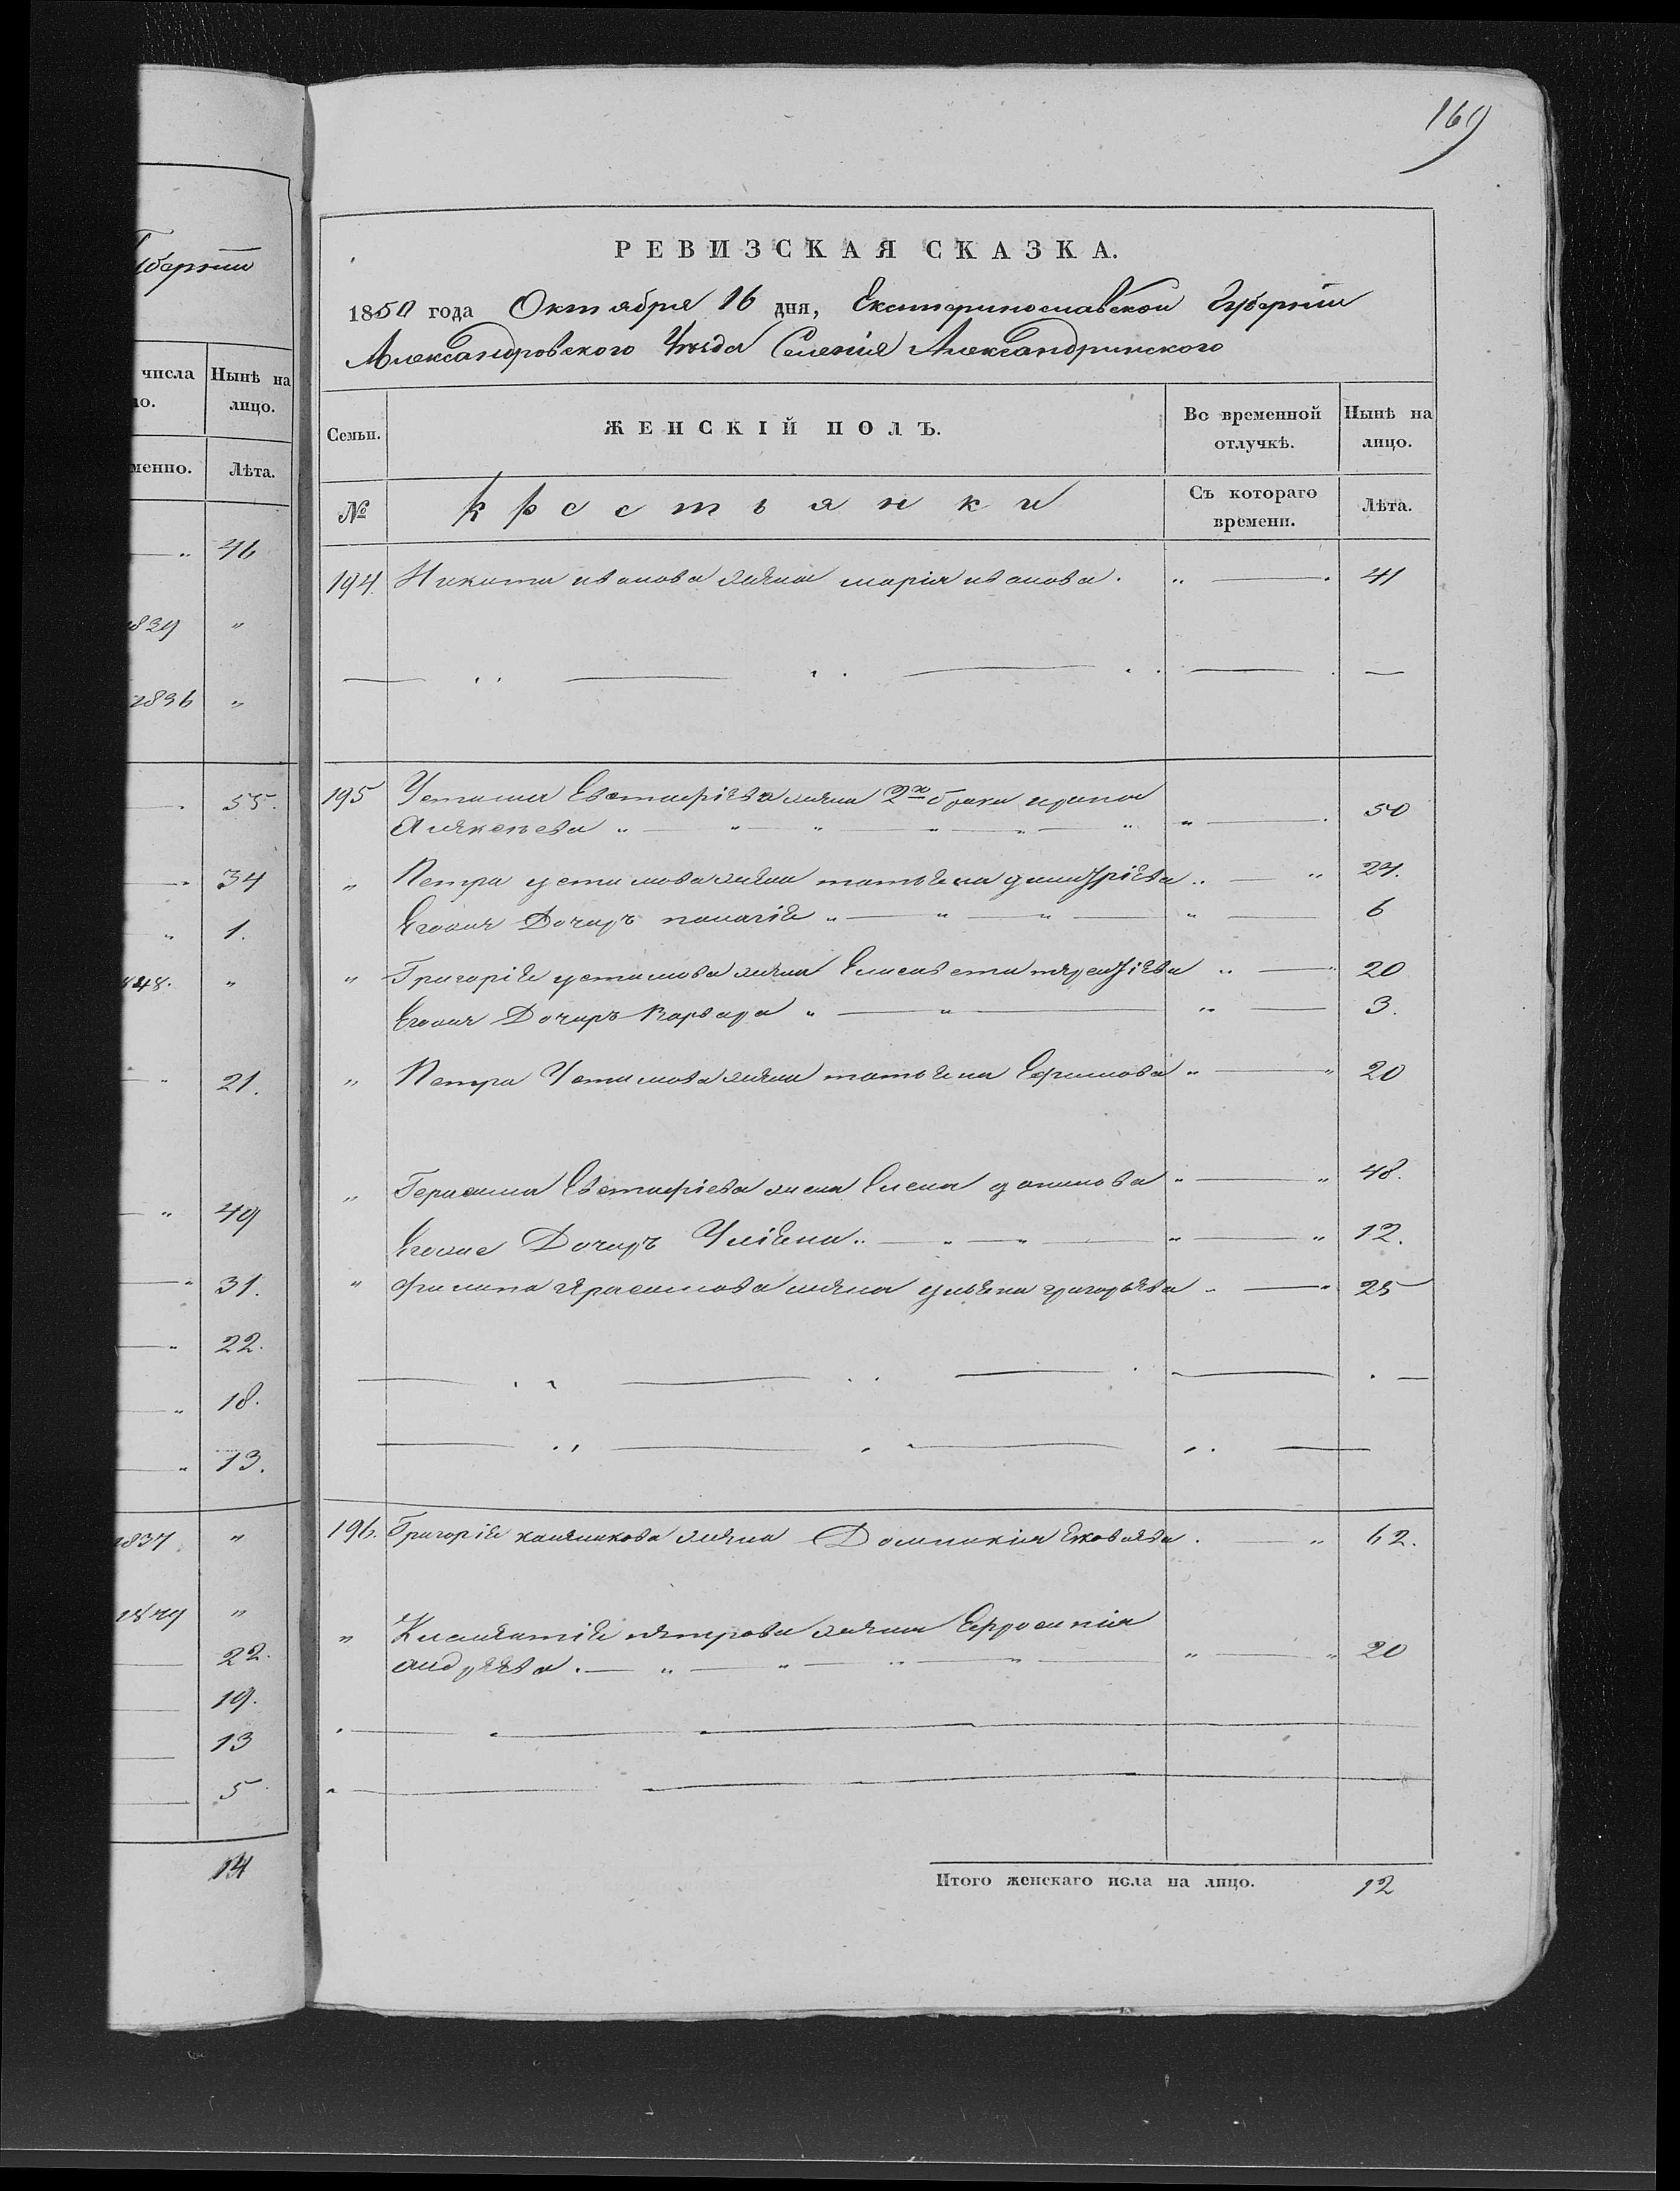 169
губерніи
числа
Нынѣ на
но.
лицо.
менно.
Лѣта.
46
1839 "
1836 "
55.
34
1.
848. "
21.
49
31.
22.
18.
13.
1837 "
1849 "
22.
19.
13
5
14
РЕВИЗСКАЯ СКАЗКА.
1850 года Октября 16 дня, Екатеринославской Губерніи
Александровского Уезда Селенія Александринского
Семьи.
ЖЕНСКІЙ ПОЛЪ.
Во временной отлучкѣ.
Нынѣ на лицо.
№
крестьянки
Съ котораго времени.
Лѣта.
194. Никиты иванова жена марія иванова. 41
195 Устима Евстафіева жена 2го брака ирина
50
" Петра устимова жена татьена димитріева 24.
Егоже Дочерь пелагія 6
" Григорія устимова жена Елисавета 20
Егоже Дочерь Варвара 3.
" Петра Устимова жена татьена Ефимова 20
" Герасима Евстафіева жена Елена данилова 48.
Егоже Дочерь 12.
" филипа герасимова жена ульена григорьева 25
196. Григорія жена Домникия 62.
" петрова жена Ефросинія
андреева 20
Итого женскаго пола на лицо. 12